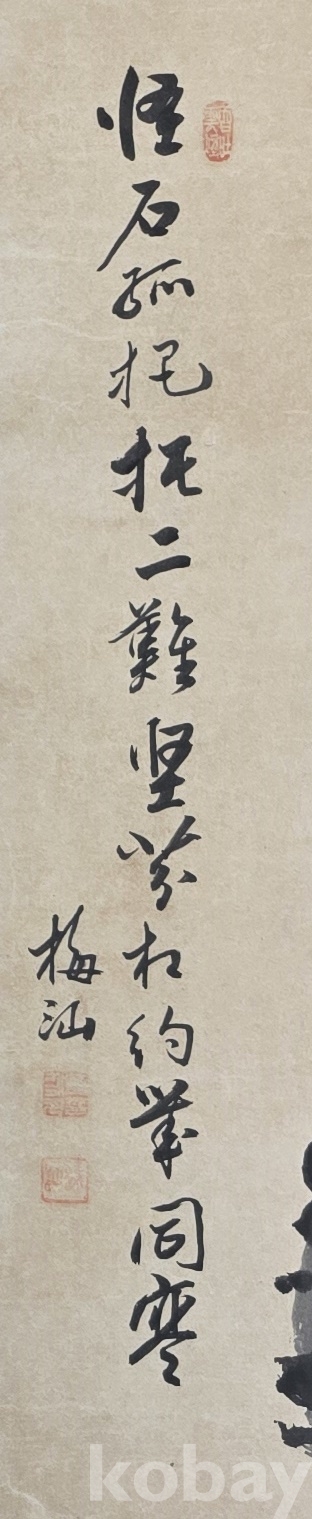 怪石孤根托二難堅芬相約歲同寒
梅汕
kobay